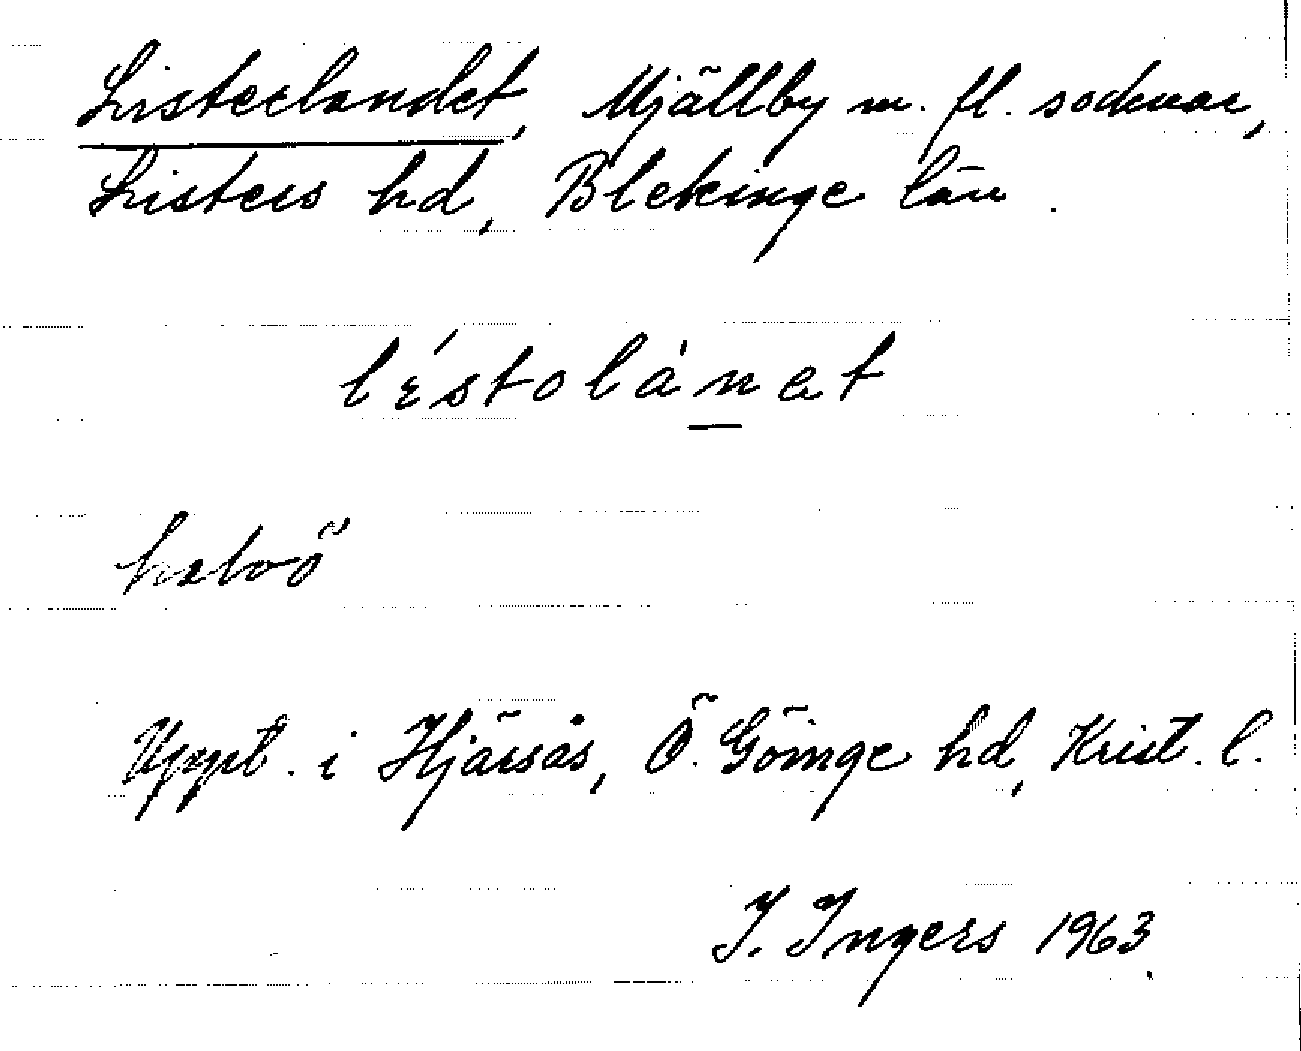 Listerlandet, Mjällby m. fl. socknar,
Listers hd, Blekinge län.
lɛ́stolánat
halvö
Uppt. i Hjärsås, Ö. Göinge hd, Krist. l.
I. Ingers 1963